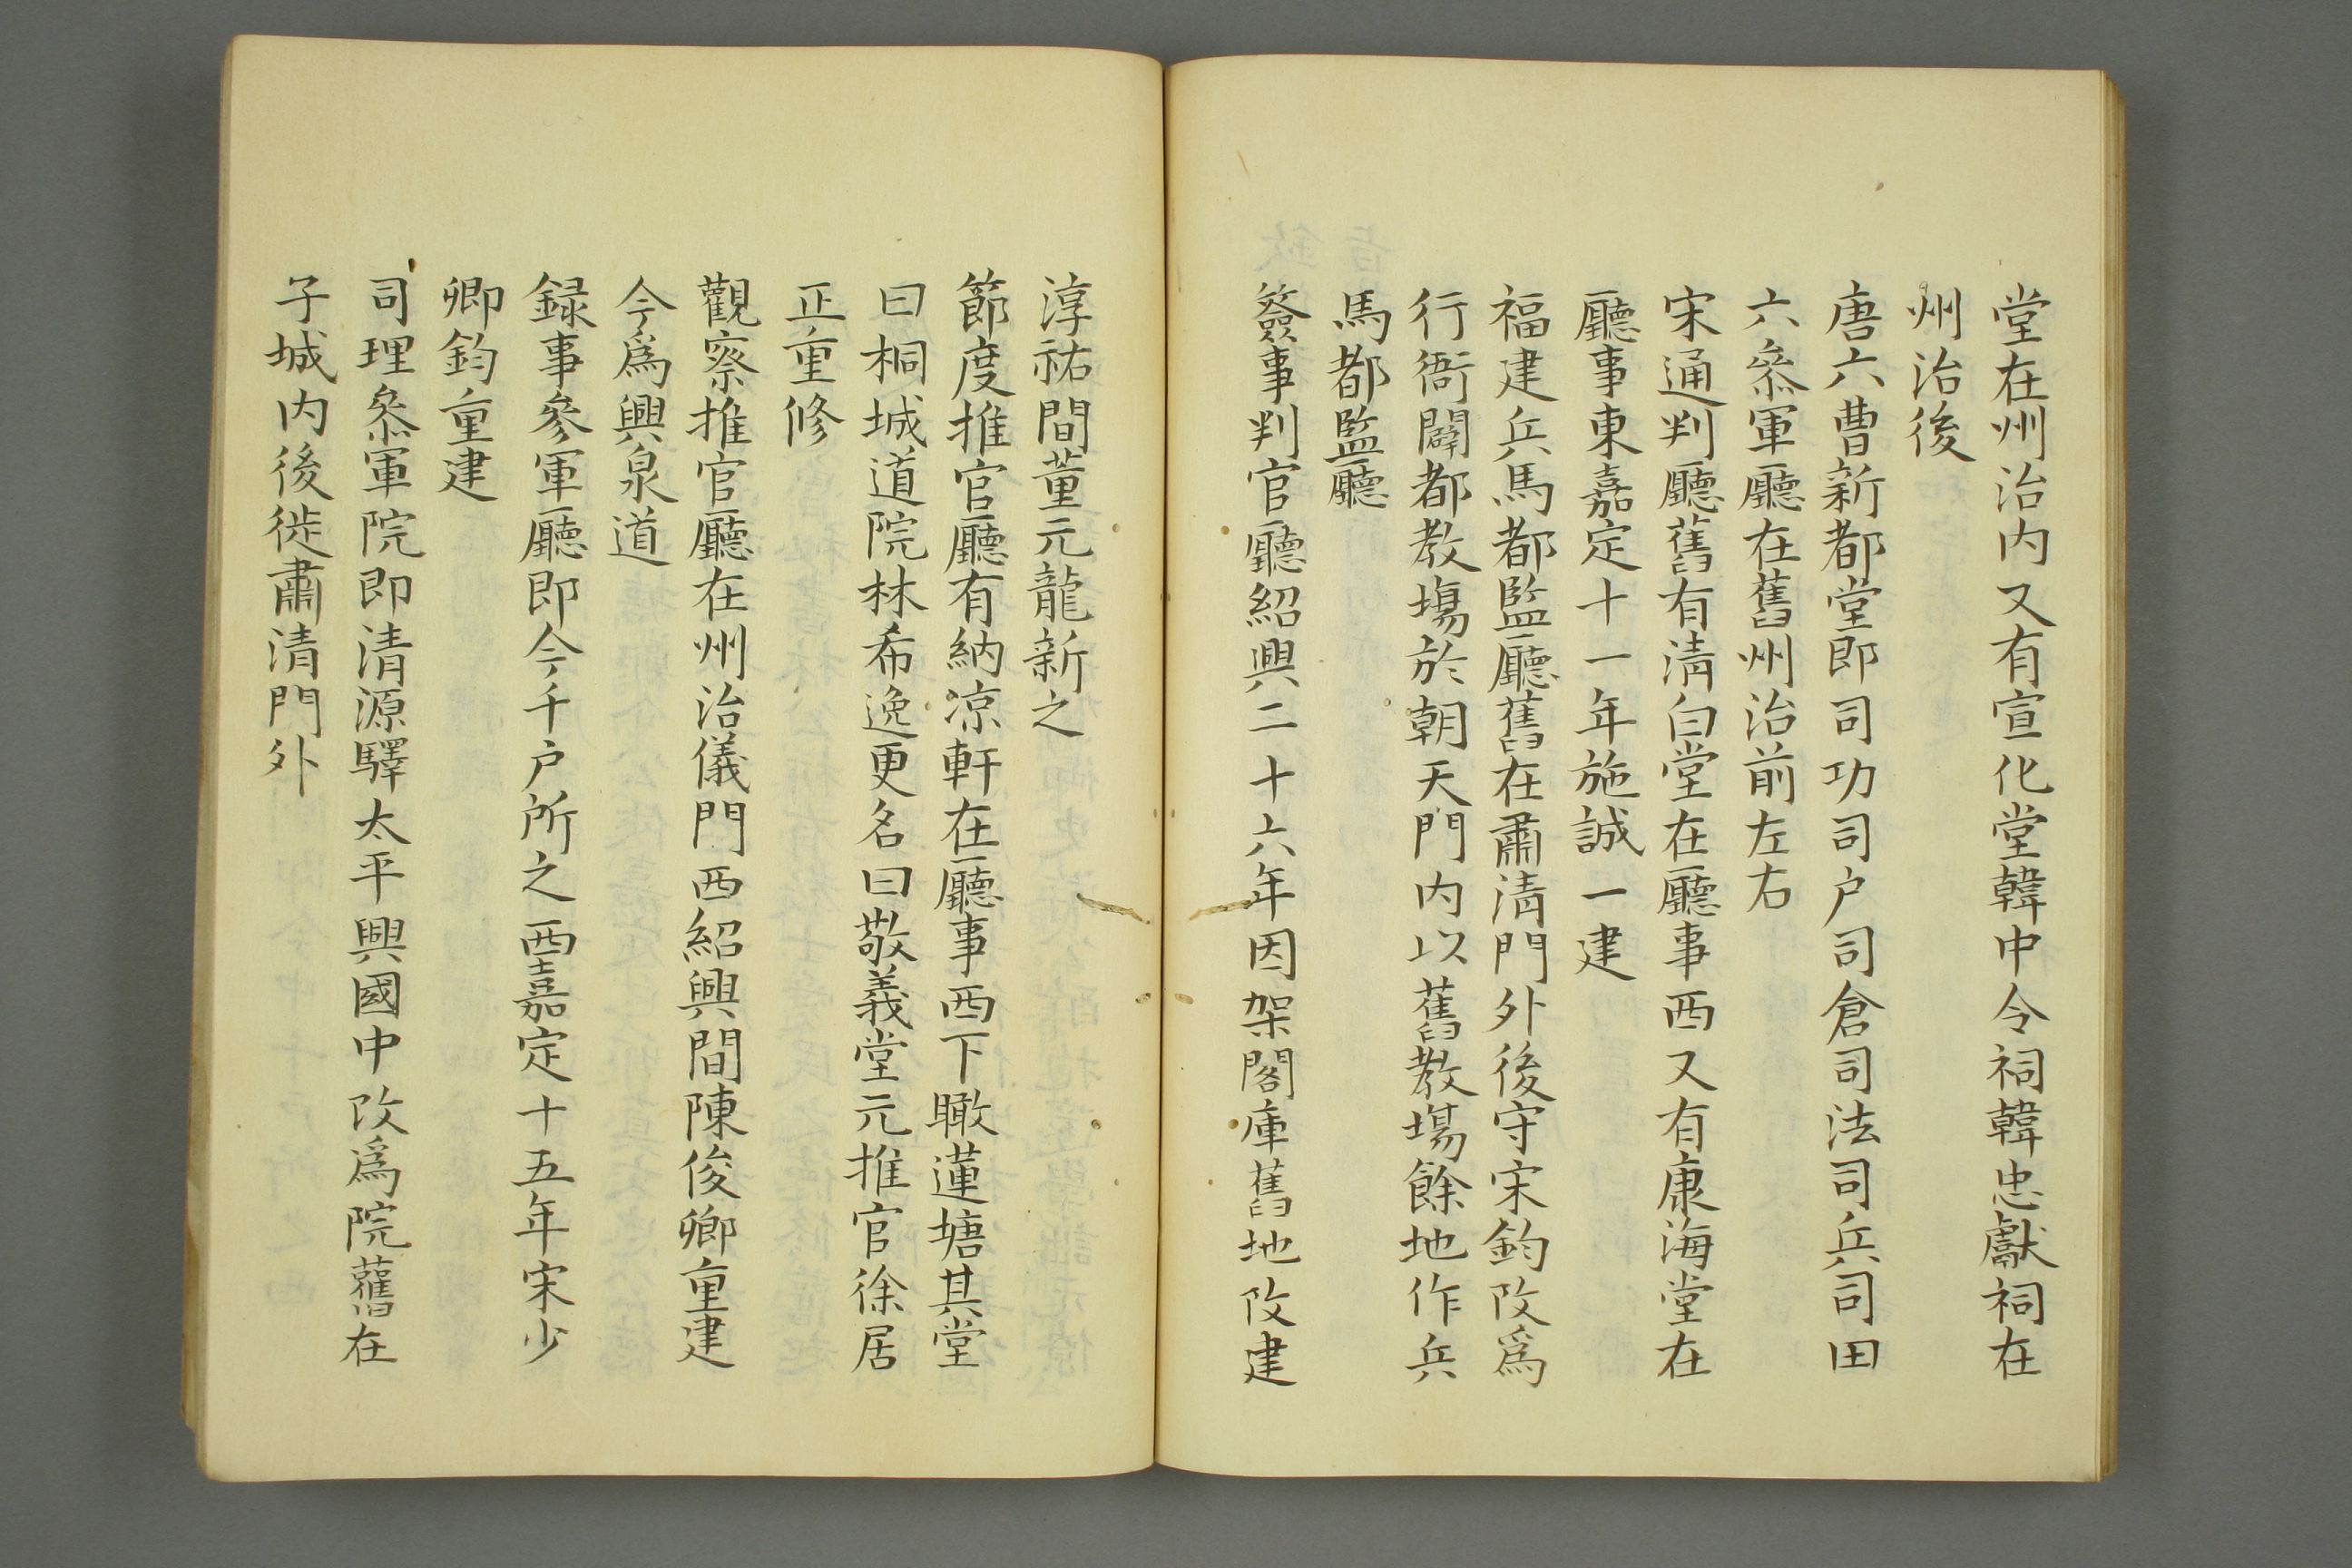 堂在州治内又有宣化堂韓中令祠韓忠獻祠在
州治後
唐六曹新都堂即司功司户司倉司法司兵司田
六叅軍廳在舊州治前左右
宋通判廳舊有清白堂在廳事西又有康海堂在
廳事東嘉定十一年施誠一建
福建兵馬都監廳舊在肅清門外後守宋鈞改爲
行衙闢都教塲於朝天門内以舊教塲餘地作兵
馬都監廳
簽事判官廳紹興二十六年因架閣庫舊地改建
淳祐間董元龍新之
節度推官廳有納凉軒在廳事西下瞰蓮塘其堂
曰桐城道院林希逸更名曰敬義堂元推官徐居
正重修
觀察推官廳在州治儀門西紹興間陳俊卿重建
今爲興泉道
録事參軍廳即今千户所之西嘉定十五年宋少
卿鈞重建
司理叅軍院即清源驛太平興國中改爲院舊在
子城内後徙肅清門外